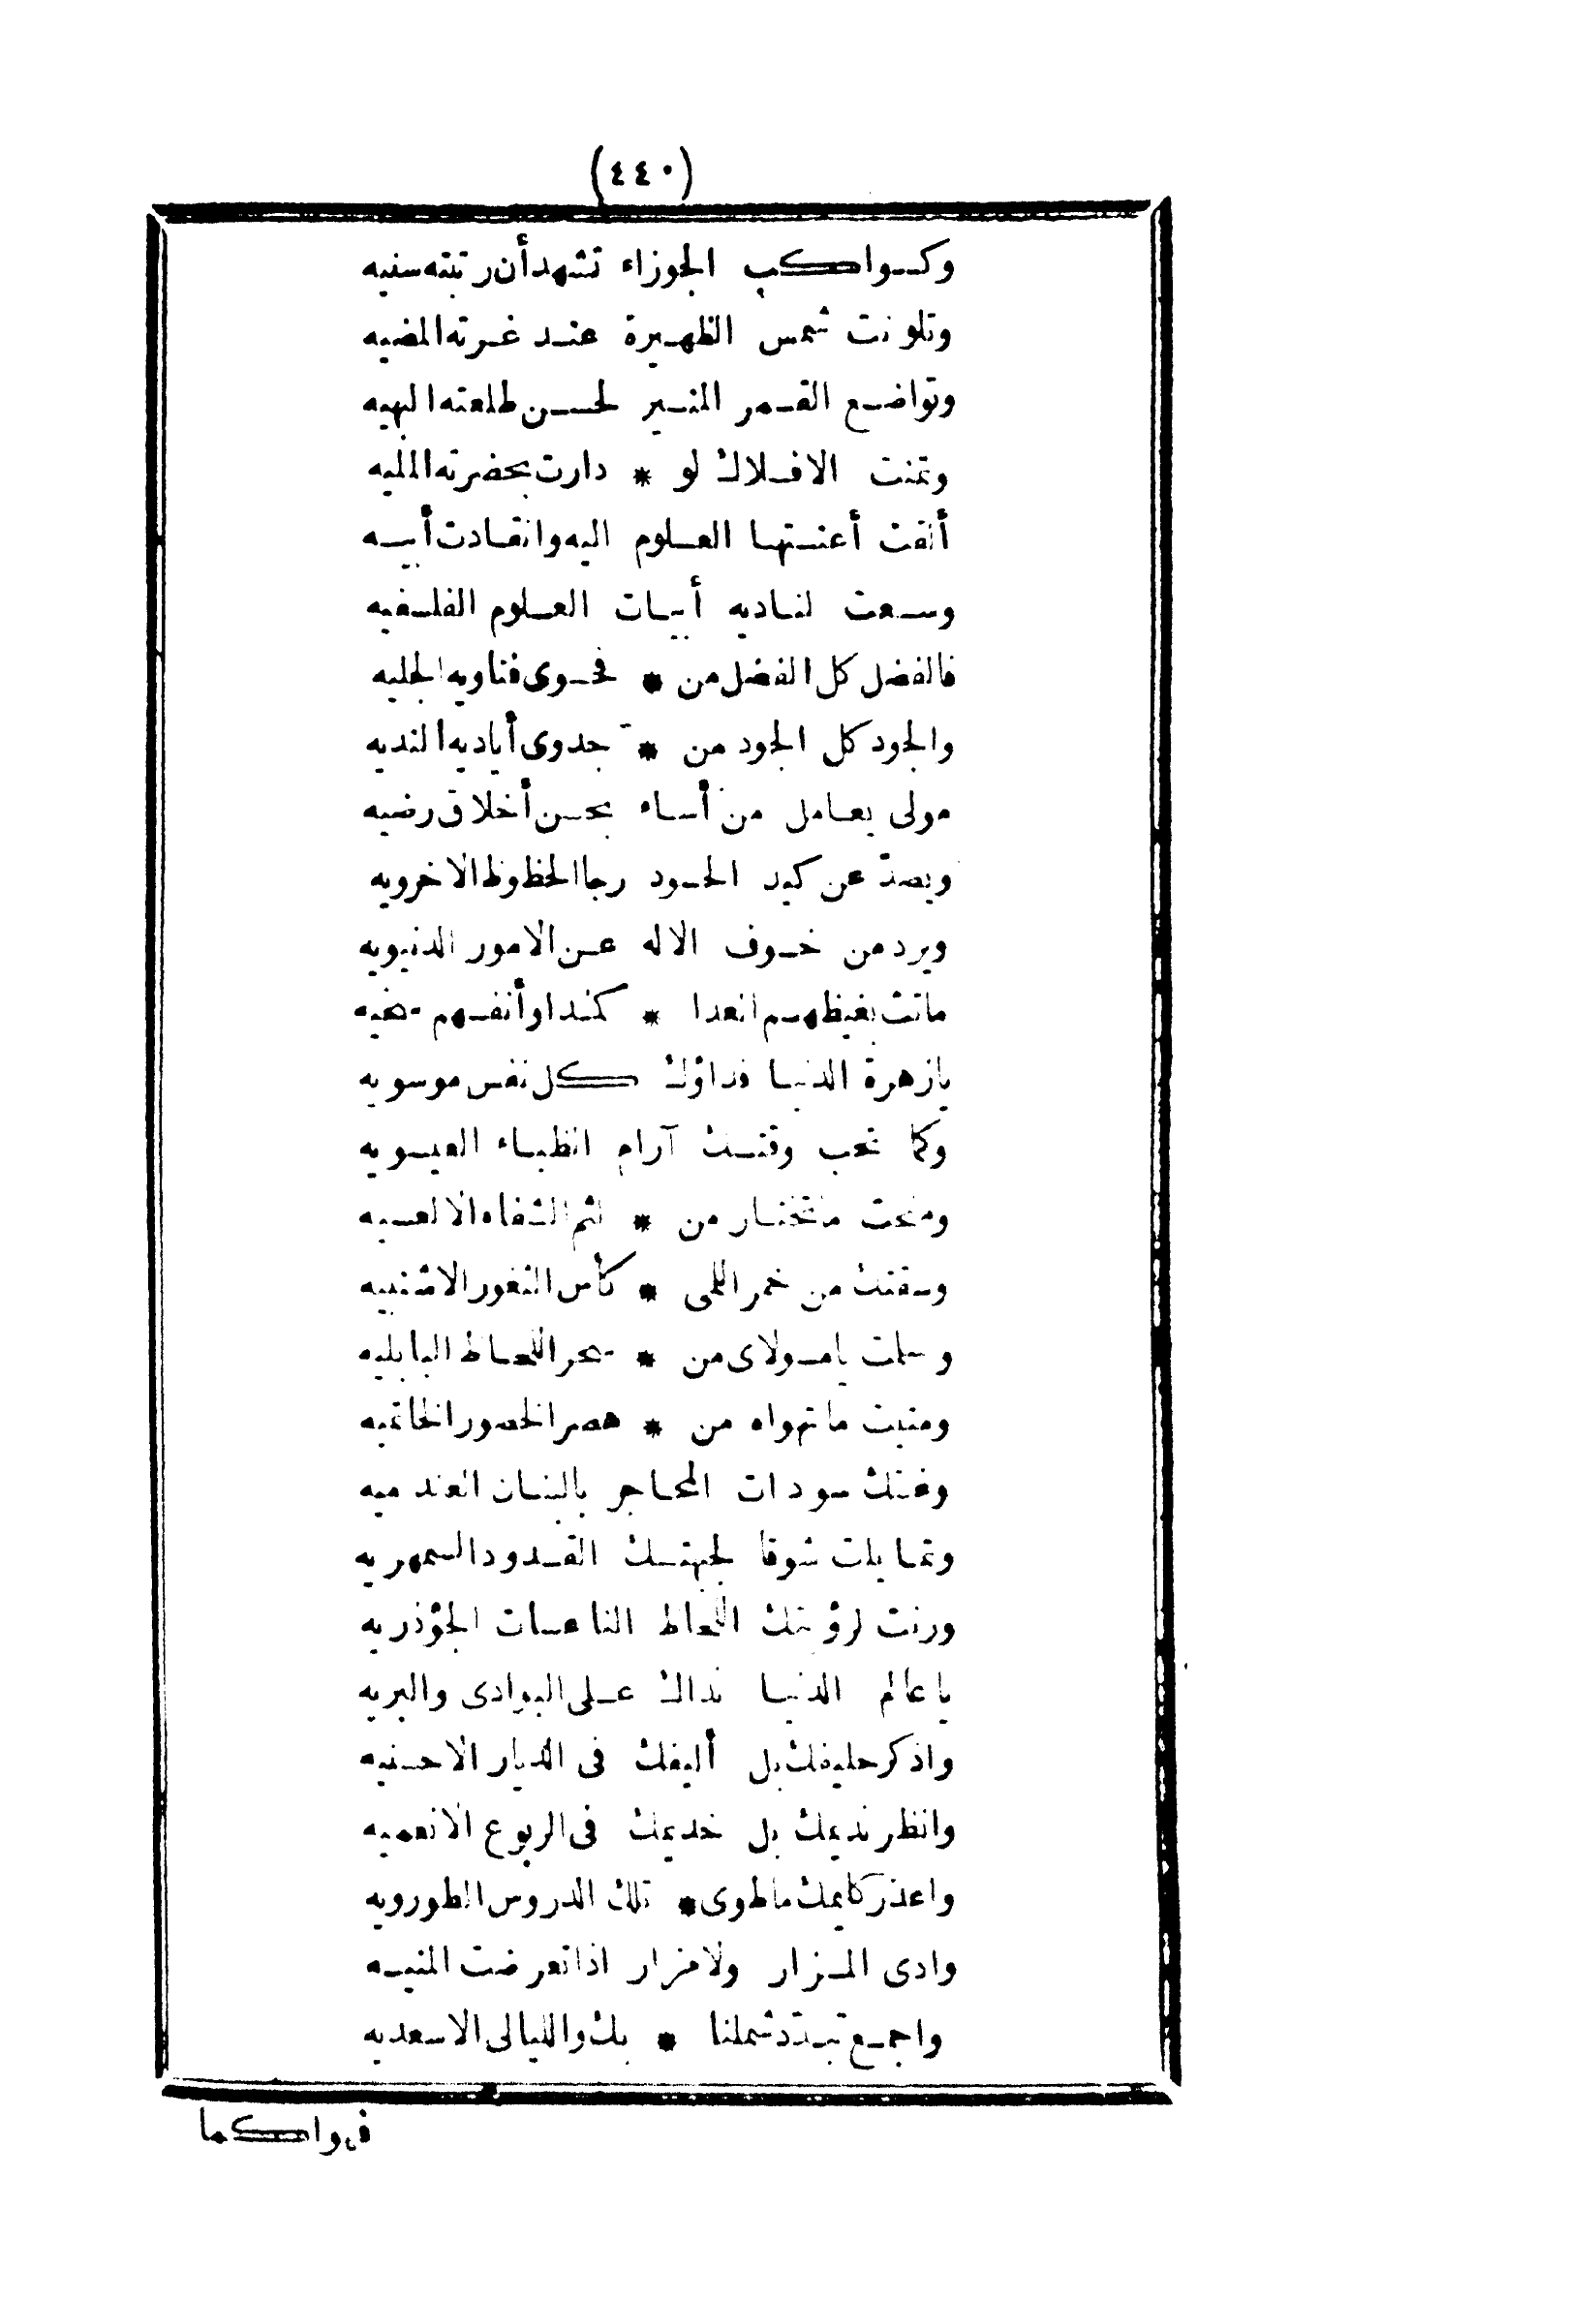 (٤٤٠)
وكواكب الجوزاء تشهد أن رتبته سنيه
وتلونت شمس الظهيرة عند غرته المضيه
وتواضع القمر المنير لحسن طلعته البهيه
وتمنت الافلاك لو * دارت بحضرته المليه
ألقت أعنتها العلوم اليه وانقادت أبيه
وسعت لناديه أبيات العلوم الفلسفيه
فالفضل كل الفضل من * فحوى فتاويه الجليه
والجود كل الجود من * جدوى أياديه النديه
مولى يعامل من أساء بحسن أخلاق رضيه
ويصدّ عن كيد الحسود رجا الحظوظ الاخرويه
ويرد من خوف الاله عن الامور الدنيويه
ماتت بغيظهم العدا * كمدا وأنفسهم سخيه
يا زهرة الدنيا فداؤك كل نفس موسويه
وكما تحب وقتك آرام الظباء العيسويه
ومنحت ما تختار من * لثم الشفاه الالعسيه
وسقتك من خمر اللمى * كأس الثغور الاشنبيه
وسلمت يا مولاى من * سحر اللحاظ البابليه
ومنيت ما تهواه من * هصر الخصور الخاتميه
وغنتك سودات المحاجر بالبنان العندميه
وتمايلت شوقا لجهتك القدود السمهريه
ورنت لرؤيتك اللحاظ الناعسات الجؤذريه
يا عالم الدنيا نداك على البوادى والبريه
واذكر حليفك بل أليفك فى الديار الاحسنيه
وانظر نديمك بل خديمك فى الربوع الانعميه
واعذر كليمك ما طوى * تلك الدروس الطورويه
وادى المزار ولا مزار اذا تعرضت المنيه
واجمع تبدّد شملنا * بك والليالى الاسعديه
فهواكما